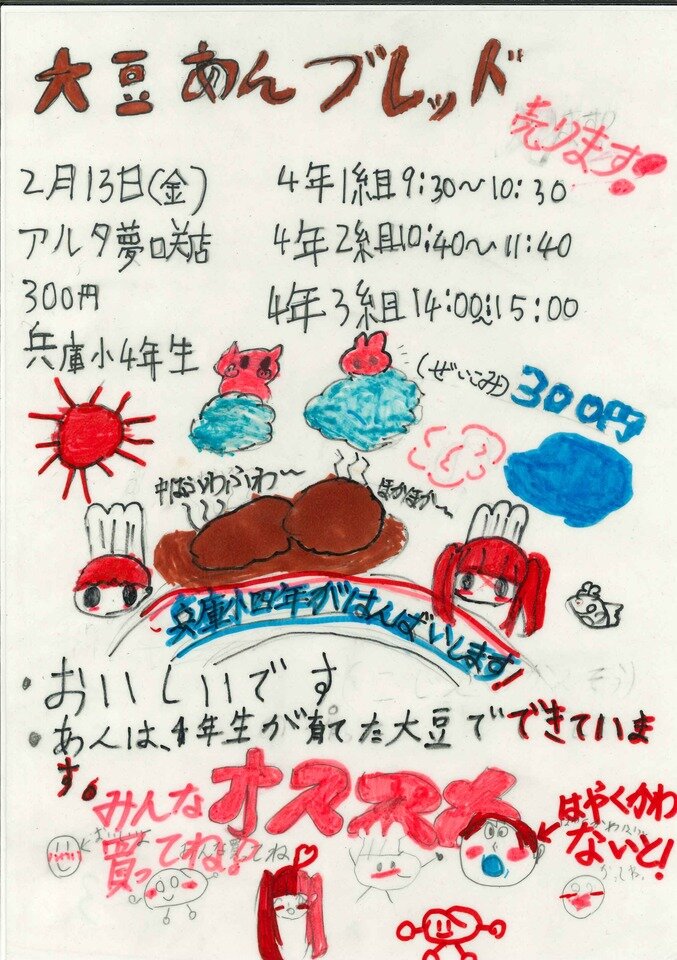 大豆あんブレッド
売ります!
2月13日(金)
アルタ夢咲店
300円
兵庫小4年生
4年1組9:30〜10:30
4年2組10:40〜11:40
4年3組14:00〜15:00
(ぜいこみ)300円
中はふわふわ〜
ほかほか〜
兵庫小四年がはんばいします!
・おいしいです
・あんは、4年生が育てた大豆でできていま
す。
オススメ
みんな
買ってね?
はやくかわ
ないと!
みんな買ってね